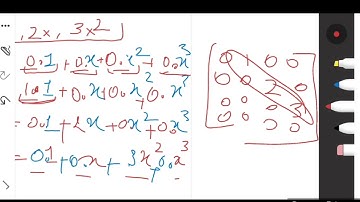 , 2x, 3x²}
0.1 + 0.x + 0.x² + 0.x³
1.1 + 0.x + 0.x² + 0x³
= 0.1 + 2x + 0x² + 0.x³
= 0.1 + 0.x + 3x² + 0.x³
0 1 0 0
0 0 2 0
0 0 0 3
0 0 0 0